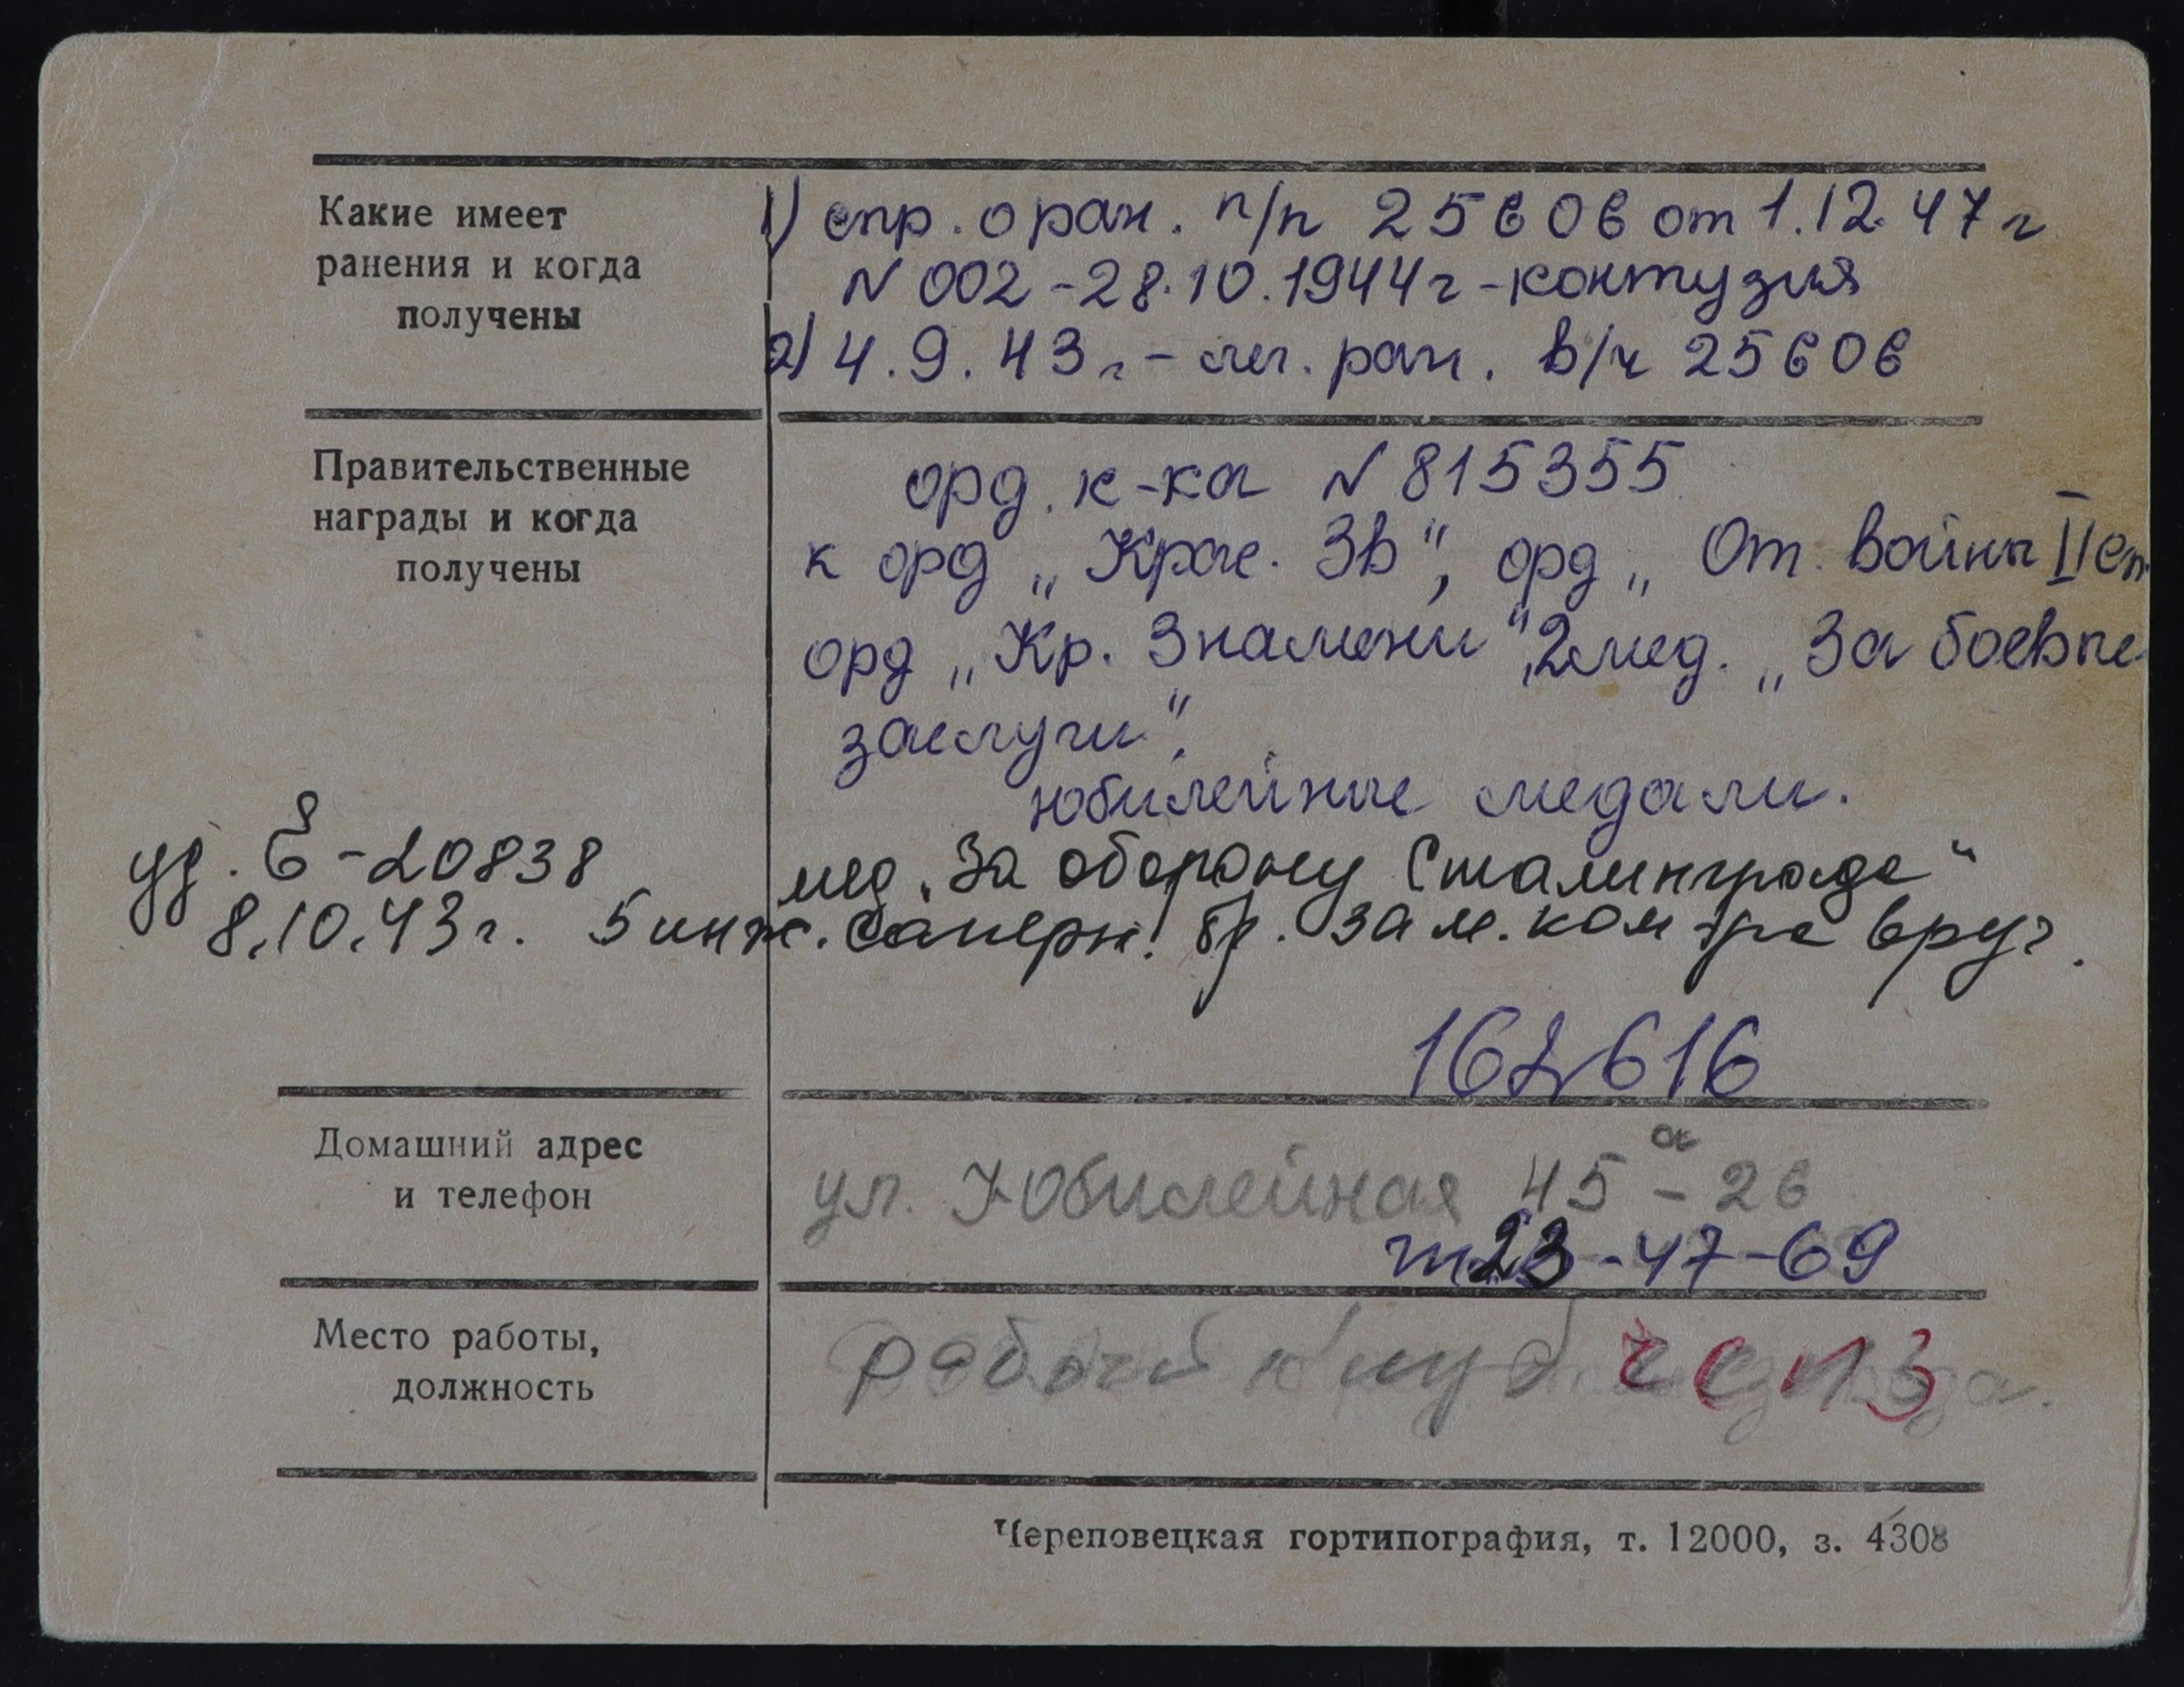 Какие имеет
ранения и когда
получены
1) спр. о ран. п/п 25606 от 1.12.47 г
N 002 - 28.10.1944 г - контузия
2) 4.9.43 г - лег. ран. в/ч 25606
Правительственные
награды и когда
получены
орд. к-ка N 815355
к орд „Крас. Зв", орд „От. войны II ст.
орд „Кр. Знамени", 2 мед. „За боевые
заслуги",
юбилейные медали.
уд. Е - 20838 мед „За оборону Сталинграда"
8.10.43 г. 5 инж. саперн. бр. зам. ком-ра вруч.
616
Домашний адрес
и телефон
ул. Юбилейная 45 а - 26
т 23-47-69
Место работы,
должность
рабочий клуб ЧСПЗ
Череповецкая гортипография, т. 12000, з. 4308